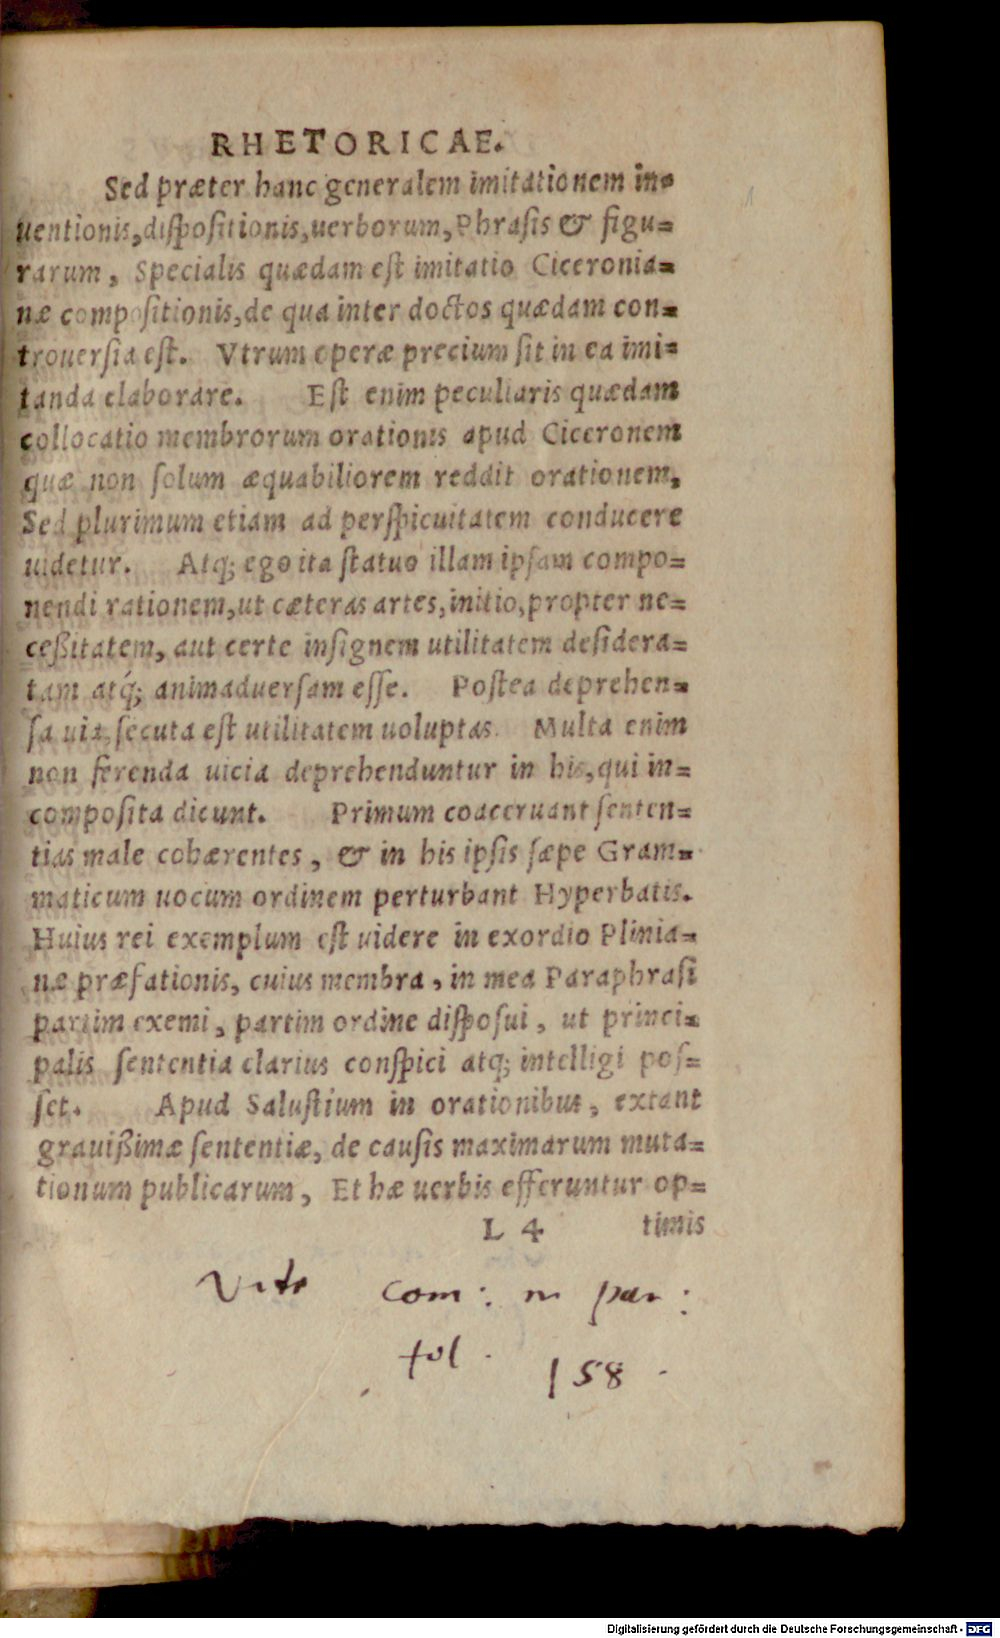 RHETORICAE.
Sed præter hanc generalem imitationem in=
uentionis, dispositionis, uerborum, Phrasis & figu=
rarum, Specialis quædam est imitatio Ciceronia=
næ compositionis, de qua inter doctos quædam con=
trouersia est. Vtrum operæ precium sit in ea imi=
tanda elaborare. Est enim peculiaris quædam
collocatio membrorum orationis apud Ciceronem
quæ non solum æquabiliorem reddit orationem,
Sed plurimum etiam ad perspicuitatem conducere
uidetur. Atq; ego ita statuo illam ipsam compo=
nendi rationem, ut cæteras artes, initio, propter ne=
ceßitatem, aut certe insignem utilitatem desidera=
tam atq́; animaduersam esse. Postea deprehen=
sa uia, secuta est utilitatem uoluptas. Multa enim
non ferenda uicia deprehenduntur in his, qui in=
composita dicunt. Primum coaceruant senten=
tias male cohærentes, & in his ipsis sæpe Gram=
maticum uocum ordinem perturbant Hyperbatis.
Huius rei exemplum est uidere in exordio Plinia=
næ præfationis, cuius membra, in mea Paraphrasi
partim exemi, partim ordine disposui, ut princi=
palis sententia clarius conspici atq; intelligi pos=
set. Apud Salustium in orationibus, extant
grauißimæ sententiæ, de causis maximarum muta=
tionum publicarum, Et hæ uerbis efferuntur op=
L 4 timis
com: in par:
fol. 158.
Digitalisierung gefördert durch die Deutsche Forschungsgemeinschaft - DFG